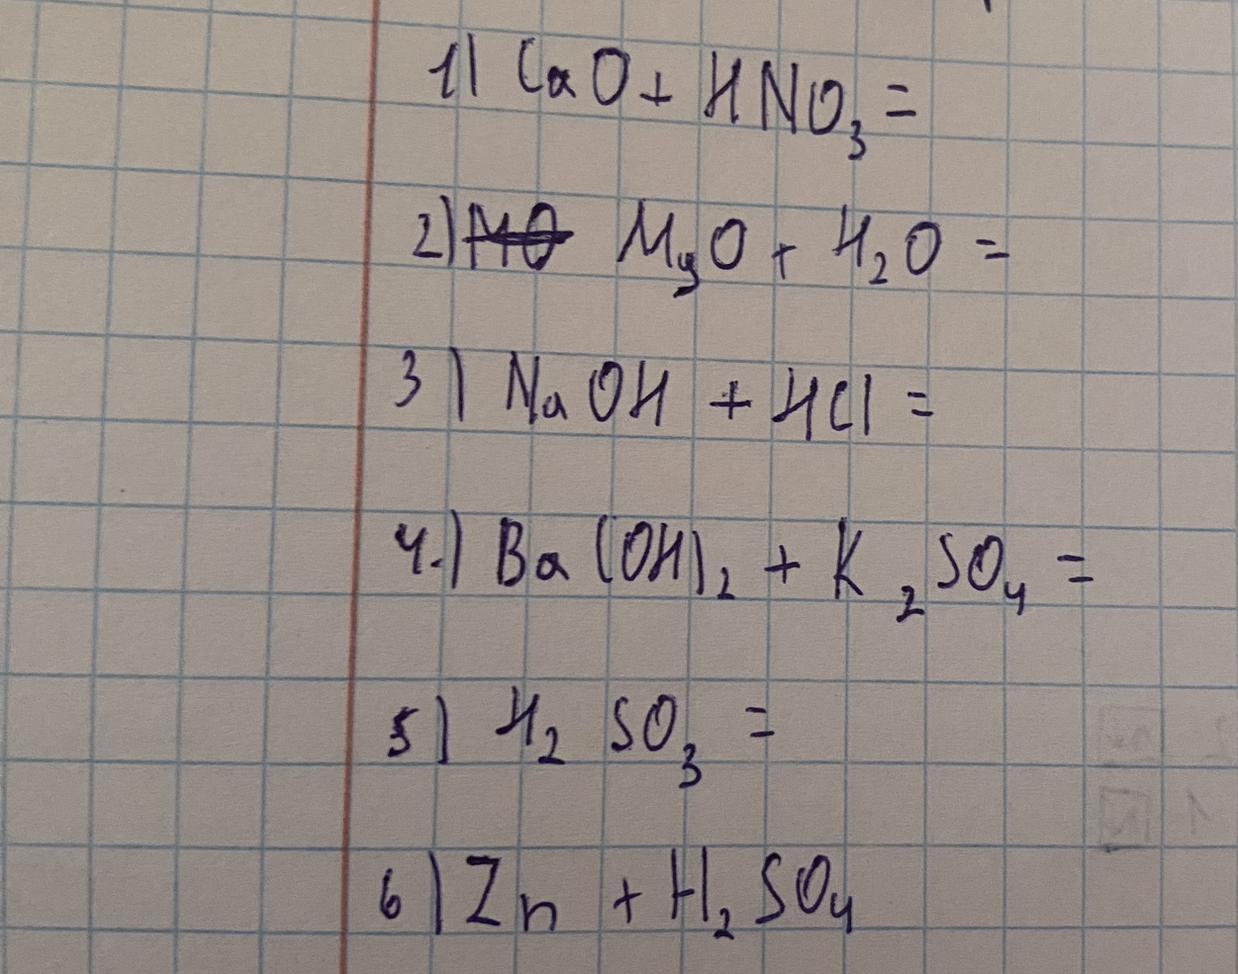 1) CaO + HNO₃ =
2) MgO + H₂O =
3) NaOH + HCl =
4.) Ba(OH)₂ + K₂SO₄ =
5) H₂SO₃ =
6) Zn + H₂SO₄